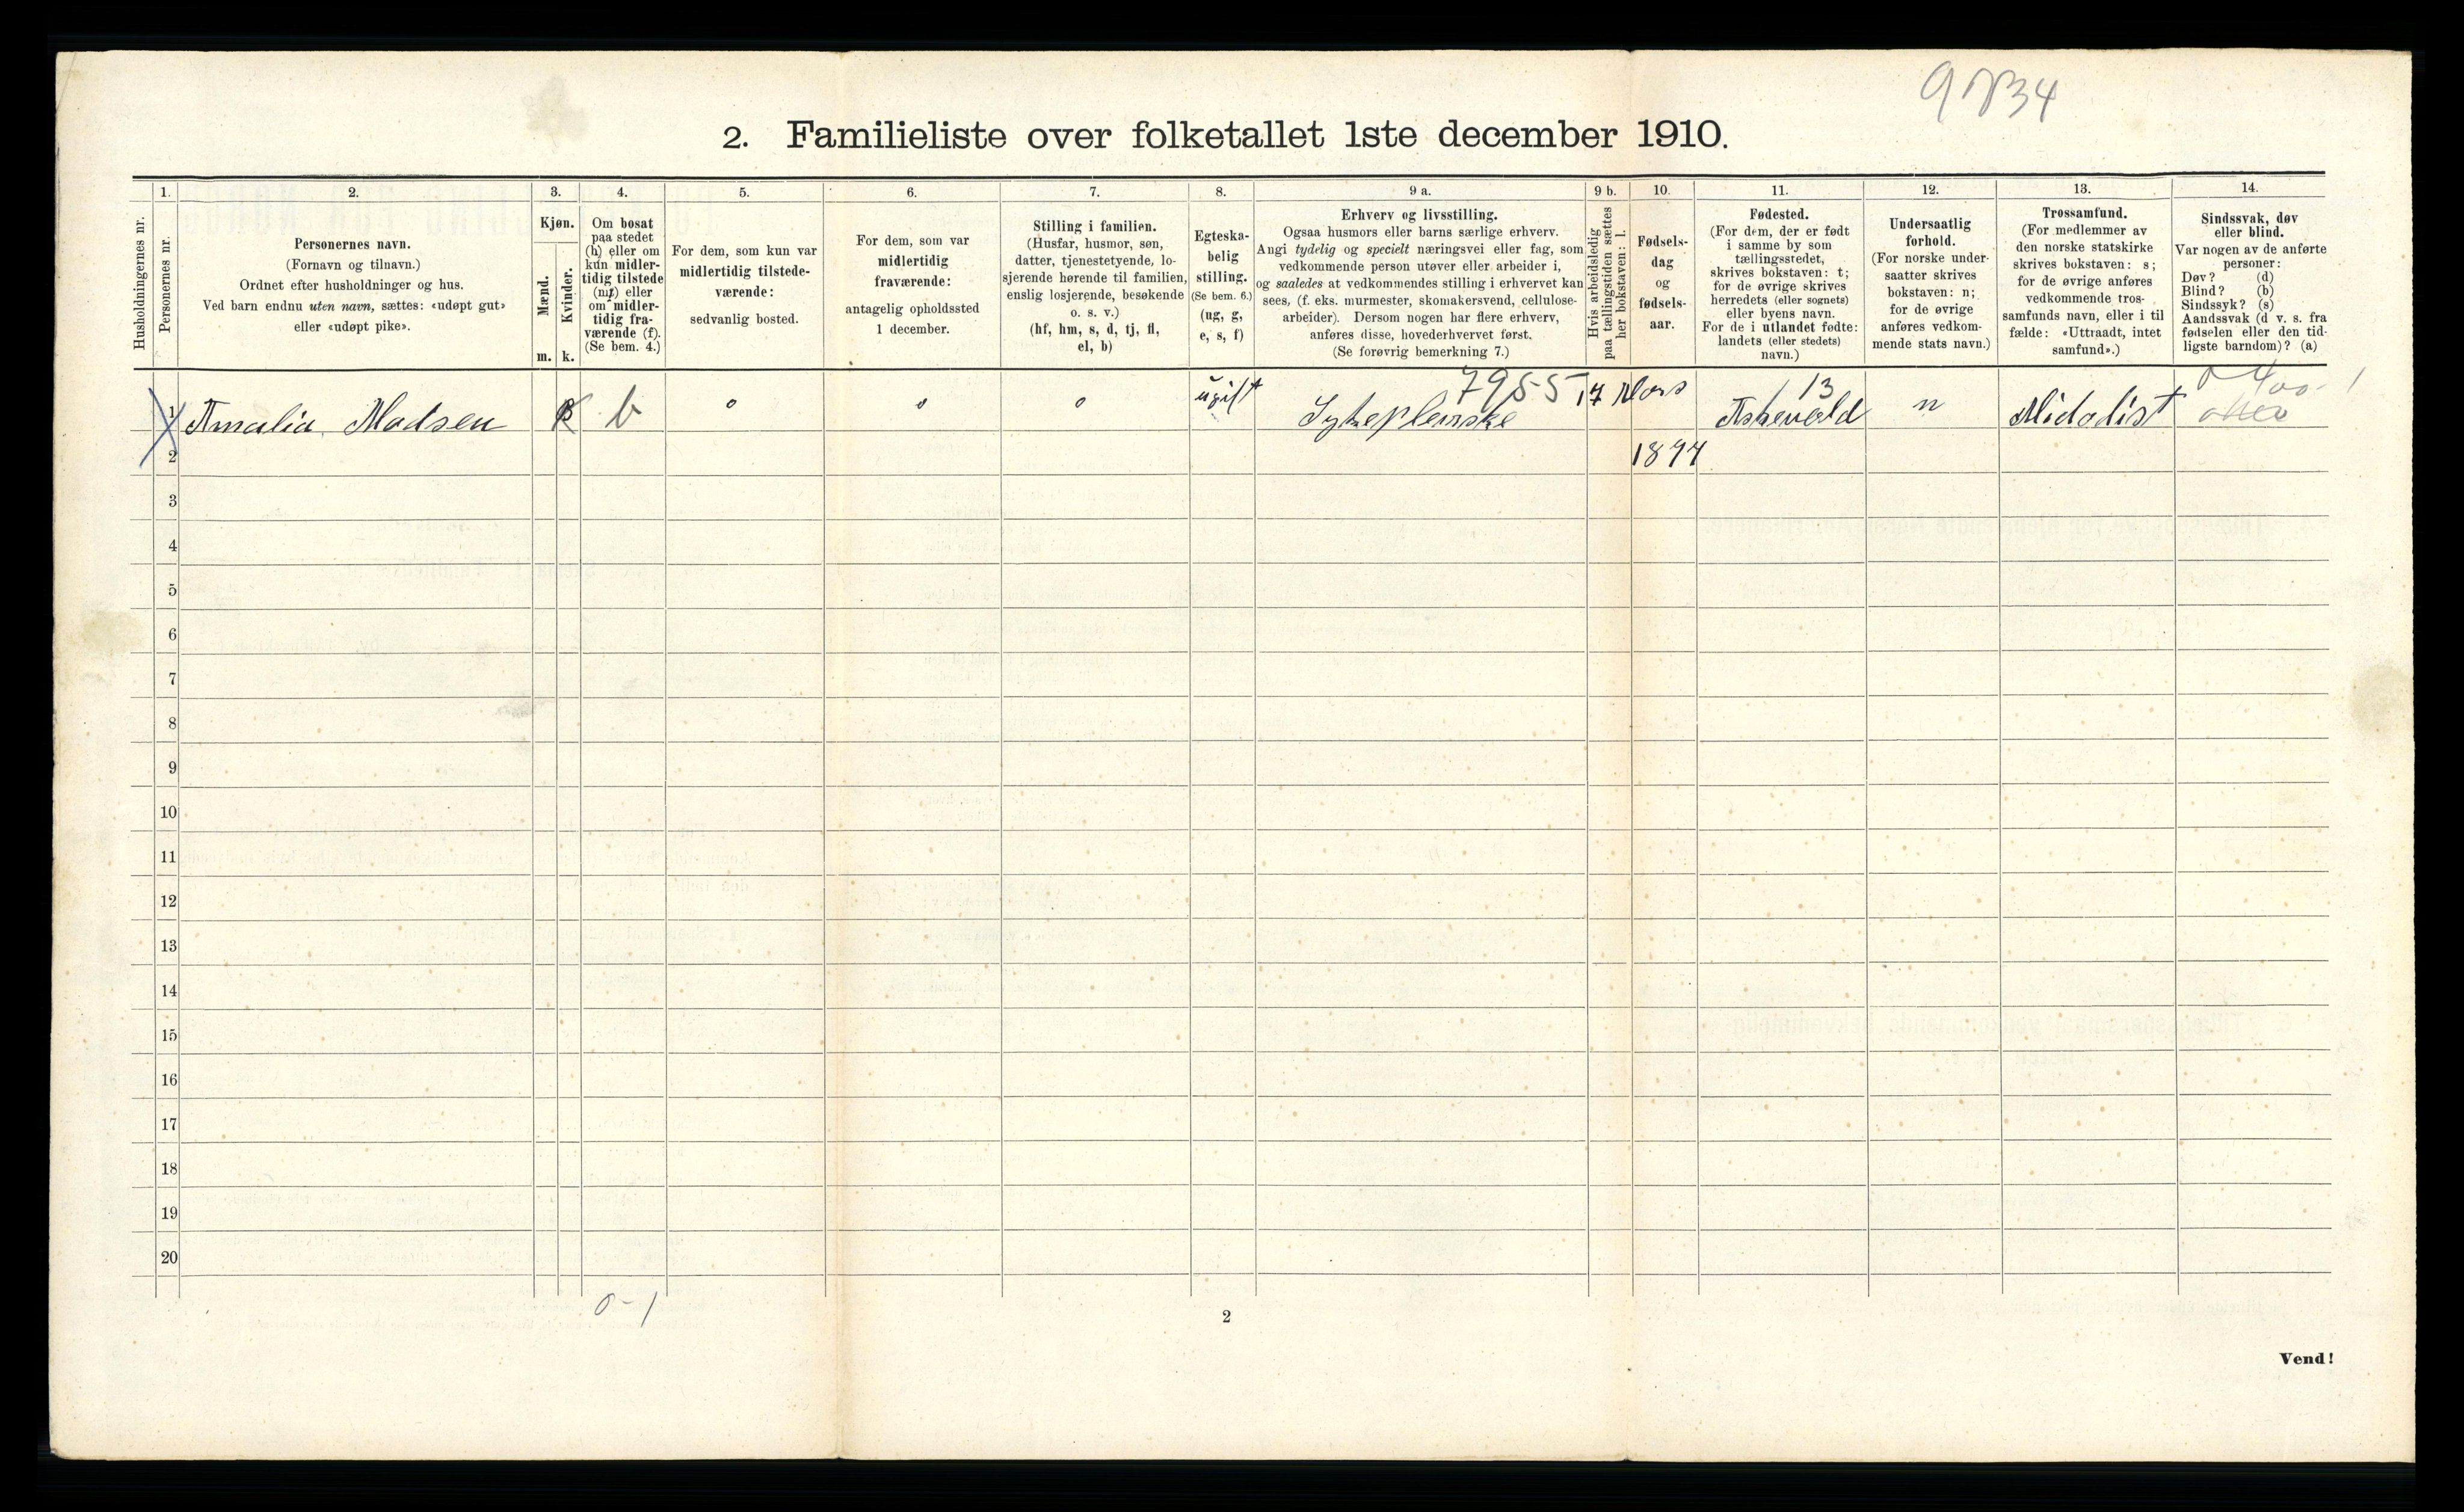 2. Familieliste over folketallet 1ste december 1910.
1. 2. 3. 4. 5. 6. 7. 8. 9 a. 9 b. 10. 11. 12. 13. 14.
Husholdningernes nr.
Personernes nr.
Personernes navn.
(Fornavn og tilnavn.)
Ordnet efter husholdninger og hus.
Ved barn endnu uten navn, sættes: «udøpt gut»
eller «udøpt pike».
Kjøn.
Mænd.
Kvinder.
m. k.
Om bosat
paa stedet
(b) eller om
kun midler-
tidig tilstede
(mt) eller
om midler-
tidig fra-
værende (f).
(Se bem. 4.)
For dem, som kun var
midlertidig tilstede-
værende:
sedvanlig bosted.
For dem, som var
midlertidig
fraværende:
antagelig opholdssted
1 december.
Stilling i familien.
(Husfar, husmor, søn,
datter, tjenestetyende, lo-
sjerende hørende til familien,
enslig losjerende, besøkende
o. s. v.)
(hf, hm, s, d, tj, fl,
el, b)
Egteska-
belig
stilling.
(Se bem. 6.)
(ug, g,
e, s, f)
Erhverv og livsstilling.
Ogsaa husmors eller barns særlige erhverv.
Angi tydelig og specielt næringsvei eller fag, som
vedkommende person utøver eller arbeider i,
og saaledes at vedkommendes stilling i erhvervet kan
sees, (f. eks. murmester, skomakersvend, cellulose-
arbeider). Dersom nogen har flere erhverv,
anføres disse, hovederhvervet først.
(Se forøvrig bemerkning 7.)
Hvis arbeidsledig
paa tællingstiden sættes
her bokstaven: l.
Fødsels-
dag
og
fødsels-
aar.
Fødested.
(For dem, der er født
i samme by som
tællingsstedet,
skrives bokstaven: t;
for de øvrige skrives
herredets (eller sognets)
eller byens navn.
For de i utlandet fødte:
landets (eller stedets)
navn.)
Undersaatlig
forhold.
(For norske under-
saatter skrives
bokstaven: n;
for de øvrige
anføres vedkom-
mende stats navn.)
Trossamfund.
(For medlemmer av
den norske statskirke
skrives bokstaven: s;
for de øvrige anføres
vedkommende tros-
samfunds navn, eller i til
fælde: «Uttraadt, intet
samfund».)
Sindssvak, døv
eller blind.
Var nogen av de anførte
personer:
Døv? (d)
Blind? (b)
Sindssyk? (s)
Aandssvak (d v. s. fra
fødselen eller den tid-
ligste barndom)? (a)
7955 17 Mars 13
1 Amalia Madsen k b ugift Sykepleierske Askevold n Midodist
2 1874
3
4
5
6
7
8
9
10
11
12
13
14
15
16
17
18
19
20
0-1
2
Vend!